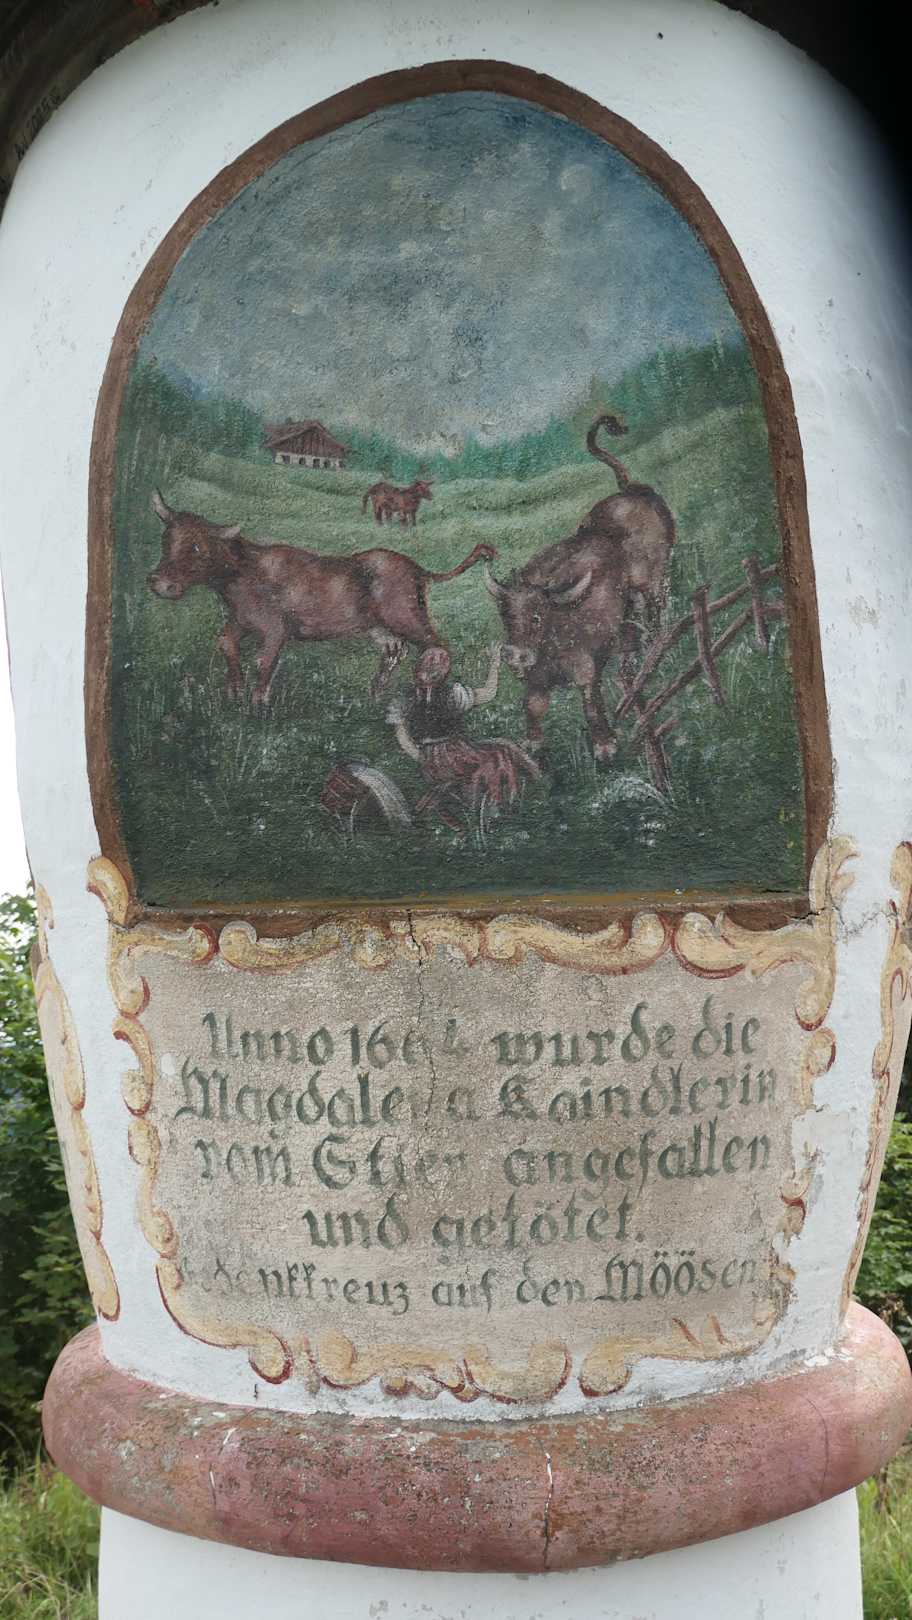 Anno 1664 wurde die
Magdalena Kaindlerin
vom Stier angefallen
und getötet.
Gedenkkreuz auf den Möösen